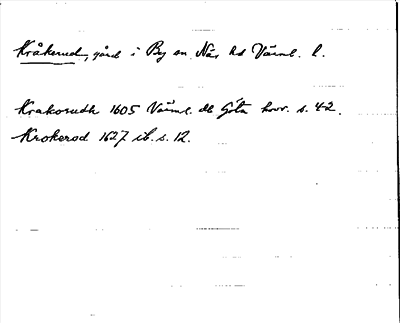 Kråkerud, gård i By sn Näs hd Värml. l.
Krakorudh 1605 Värml. db Göta hovr. s. 42.
Krokerod 1627 ib. s. 12.